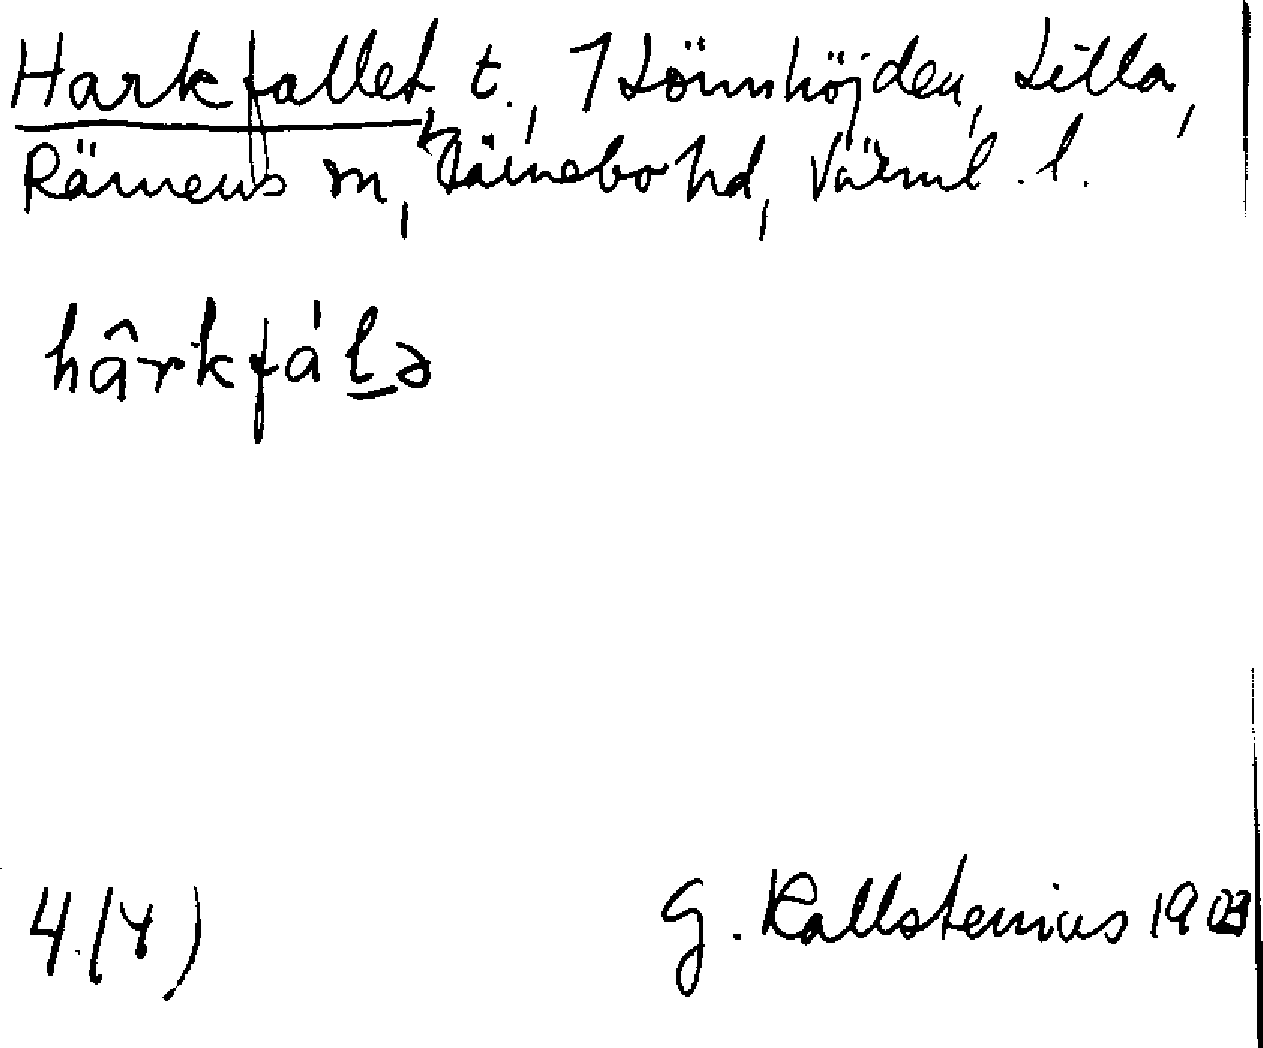 Harkfallet, t., 1 Lönnhöjden, Lilla,
Rämens sn, Färnebo hd, Värml. l.
hârkfáḻə
4.(4)
G. Kallstenius 1903